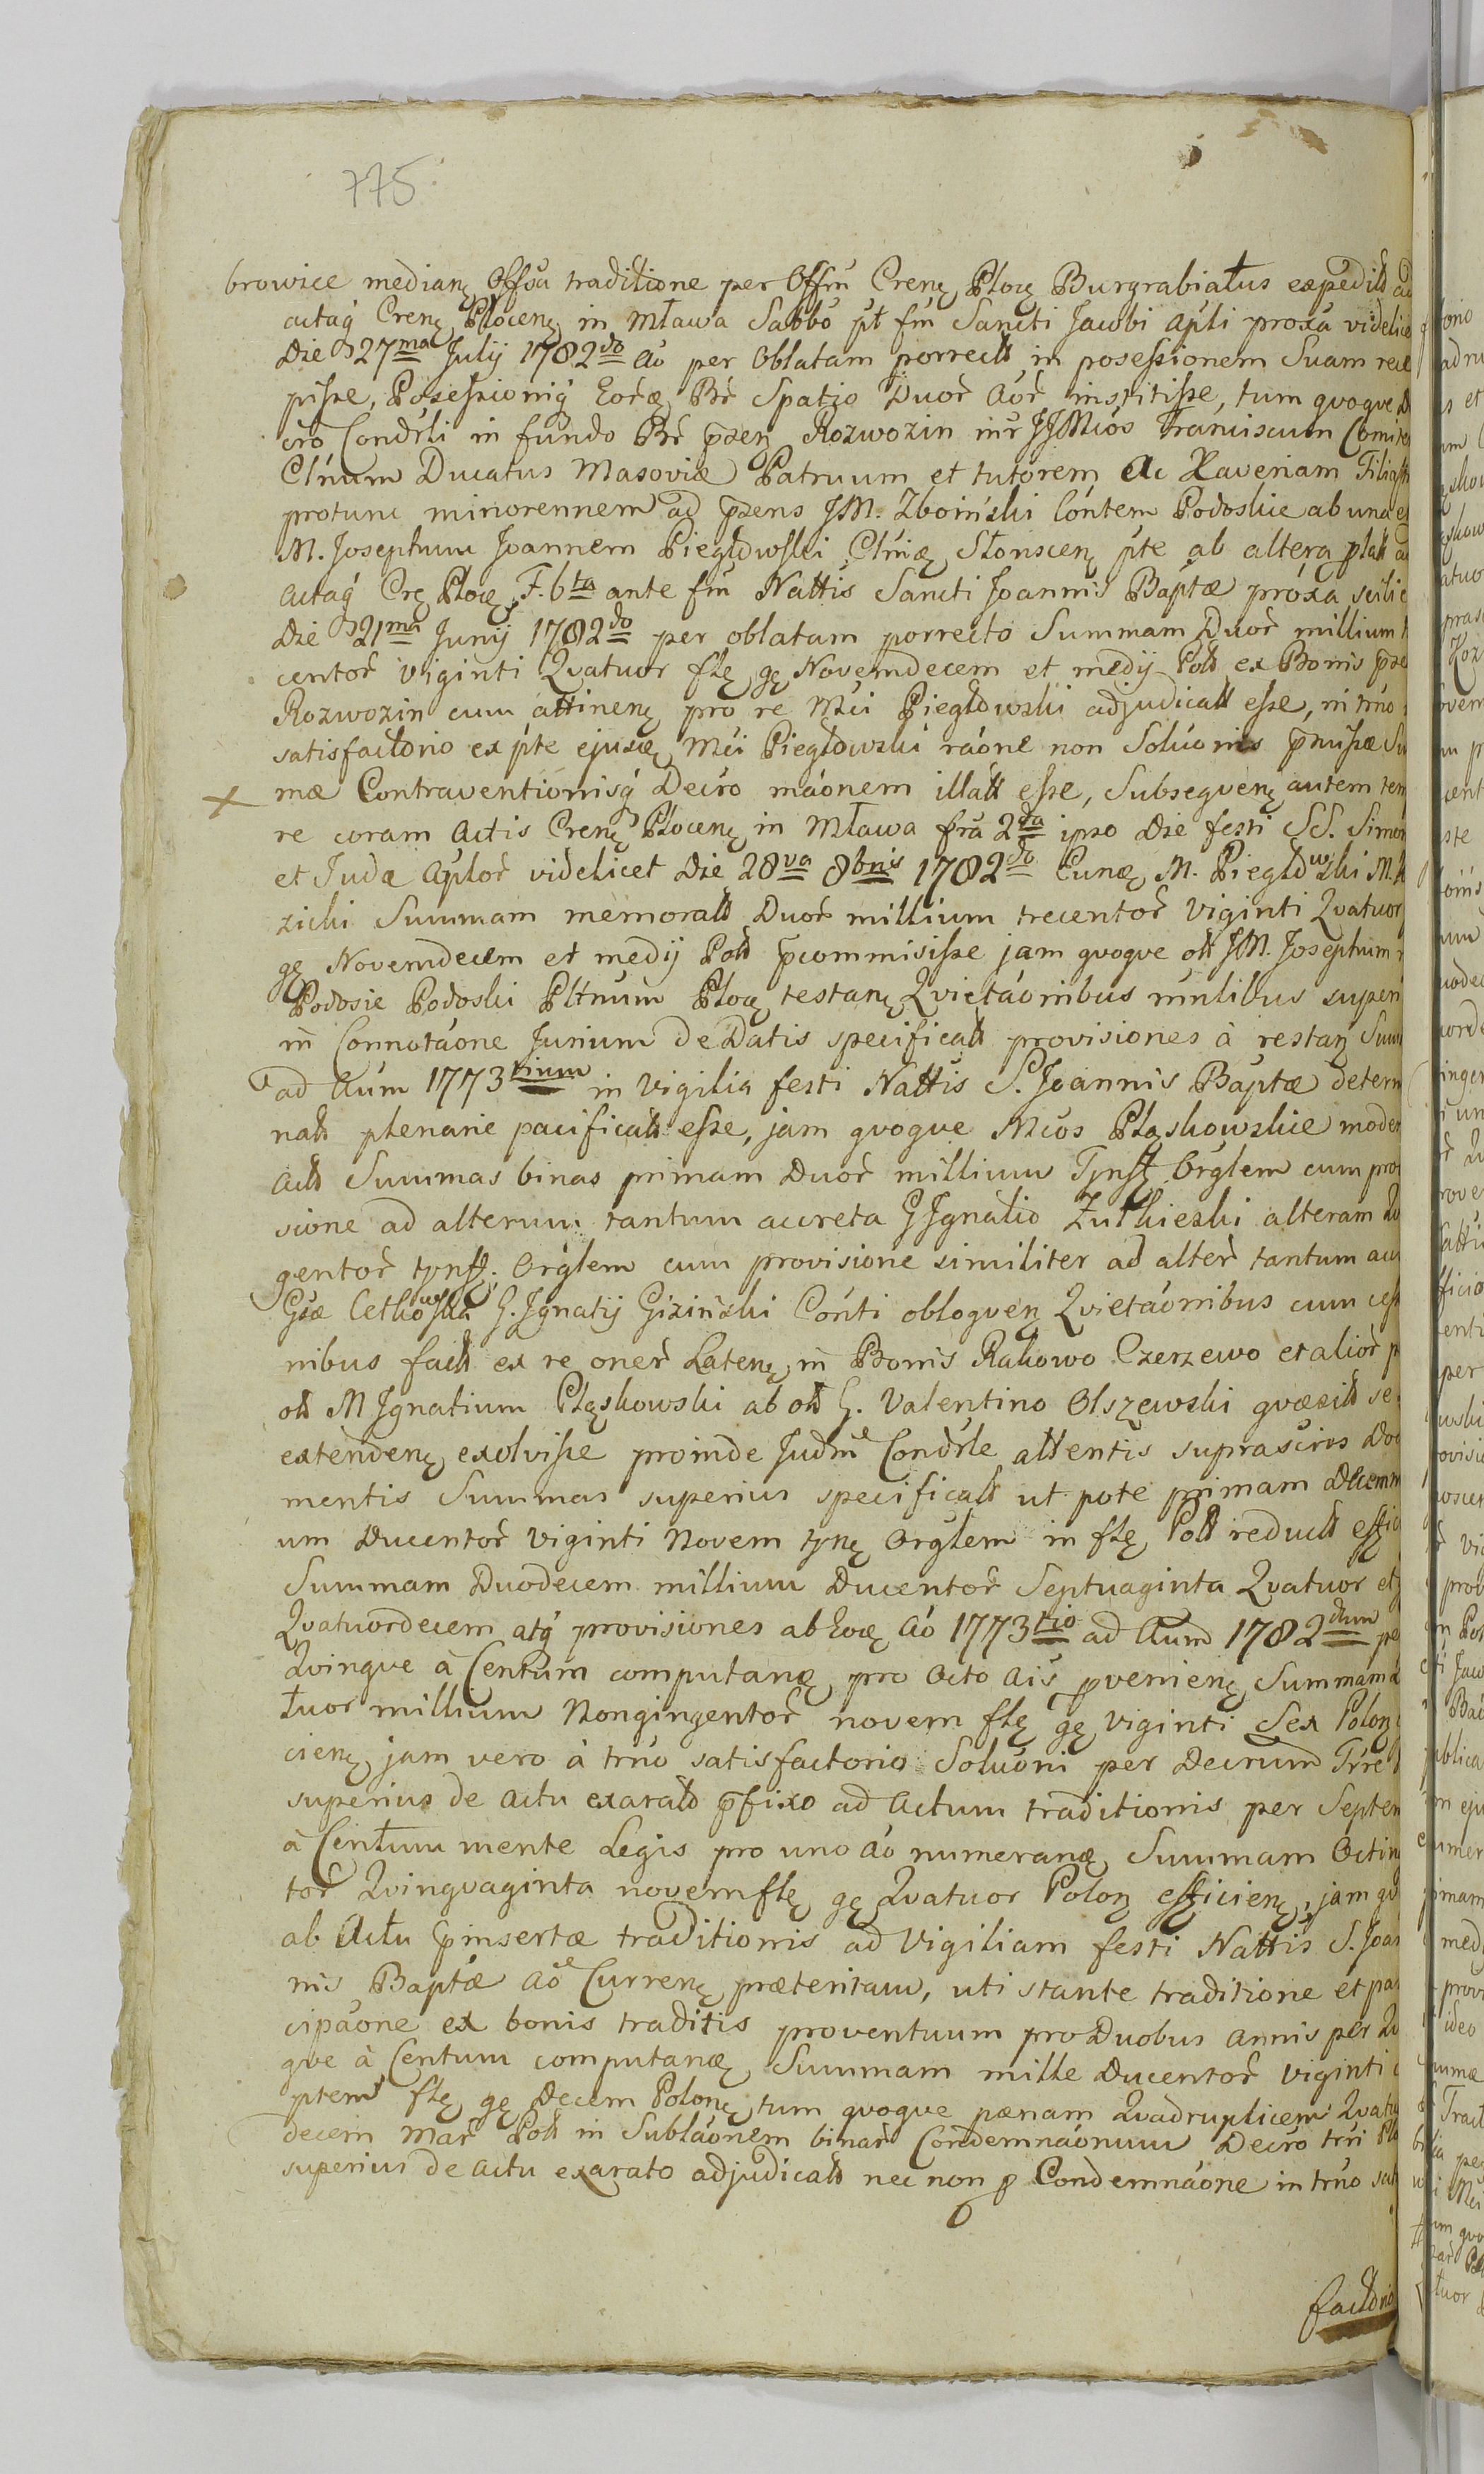 775
browice medianę Offsa traditione per Offm Crenę Płocę Burgrabiatus expedit ad
actag Crenę Płocenę in Mława Sabbo pt fm Sancti Jacobi Apli proxa videlic
Die 27ma July 1782do ao per Oblatam porrectt in possessionem Suam rece
pisse, Possessioniq Eoræ Br Spatio Duor Aor institisse, tum qvoqve D
cro Condrli in fundo Br przen Rozwozin intr JJMcos Franciscum Comitem
Clnum Ducatus Masoviæ Patruum et tutorem Ac Xaveriam Filiast
protunc minorennem ad przens JM. Zboiński Contem Podoskie ab una e
M. Josephum Joannem Piegłowski Clnię Słonscenę pte ab altera platt ad
actag Crę Płocę F. 6ta ante fm Nattis Sancti Joannis Baptæ proxa scilic
Die 21ma Junij 1782do per oblatam porrecto Summam Duor millium t
centor Viginti Qvatuor flę gę Novemdecem et medij Poltt ex Bonis prze
Rozwozin cum attinenę pro re Mci Piegłowski adjudicatt esse, in trno
satisfactorio ex pte ejusdę Mci Piegłowski raone non Soluonis pmissæ Su
mæ Contraventionisq Decro maonem illatt esse, Subseqvenę autem tem
re coram Actis Crenę Płocenę in Mława fra 2da ipso Die festi SS. Simon
et Judæ Aplor videlicet Die 28va 8bris 1782do Cunę M. Piegłowski M.
zicki Summam memoratt Duor millium trecentor Viginti Qvatuor
gę Novemdecem et medij Poltt pcommisisse jam qvoqve oltt JM. Josephum
Podosie Podoski Pltnum Płocę testanę Qvietaonibus nnlibus superi
in Connotaone Jurium de Datis specificatt provisiones à restan Sum
ad Aum 1773tium in Vigilia festi Nattis S. Joannis Baptæ determ
natt plenarie pacificatt esse, jam qvoqve Mcos Płąskowskie moder
Actt Summas binas primam Duor millium Tynff Orglem cum pro
sione ad alterum tantum accreta G Jgnatio Zutkieski alteram
gentor tynff. Orglem cum provisione similiter ad alter tantum ac
Gsæ Cetkowska G. Jgnatij Giziński Conti obloqven Qvietaonibus cum cess
nibus factt ex re oner Latenę in Bonis Rakowo Czerzewo et alior
oltt M Jgnatium Płąskowski ab oltt G. Valentino Olszewski qvæsitt se
extendenę exolvisse proinde Judm Condrle attentis suprascris Do
mentis Summas superius specificatt ut pote primam Decem
um Ducentor Viginti Novem tynę Orglem in flę Poltt reductt effic
Summam Duodecem millium Ducentor Septuaginta Qvatuor et
Qvatuordecem atq provisiones ab Eoę Ao 1773tio ad Aum 1782dum pe
Qvinqve à Centum computanę pro Octo Ais pvenienę Summam
tuor millium Nongingentor novem flę gę Viginti Sex Polon
cienę jam vero à trno satisfactorio Soluoni per Decrum Trre
superius de Actu exaratt pfixo ad Actum traditionis per Septem
à Centum mente Legis pro uno ao numeranę Summam Octin
tor Qvinqvaginta novem flę gę Qvatuor Polon efficienę, jam qv
ab Actu pinsertæ traditionis ad Vigiliam festi Nattis S. Joan
nis Baptæ ao Currenę præteritam, uti stante traditione et par
cipaone ex bonis traditis proventuum pro Duobus annis per Qv
qve à Centum computanę Summam mille Ducentor Viginti
ptem flę gę Decem Polonę tum qvoqve pænam Qvadruplicem Qvatu
decem Mar Poltt in Sublaonem binar Condemnaonum Decro trri Pło
superius de Actu exarato adjudicatt nec non p Condemnaone in trno sat
factorio